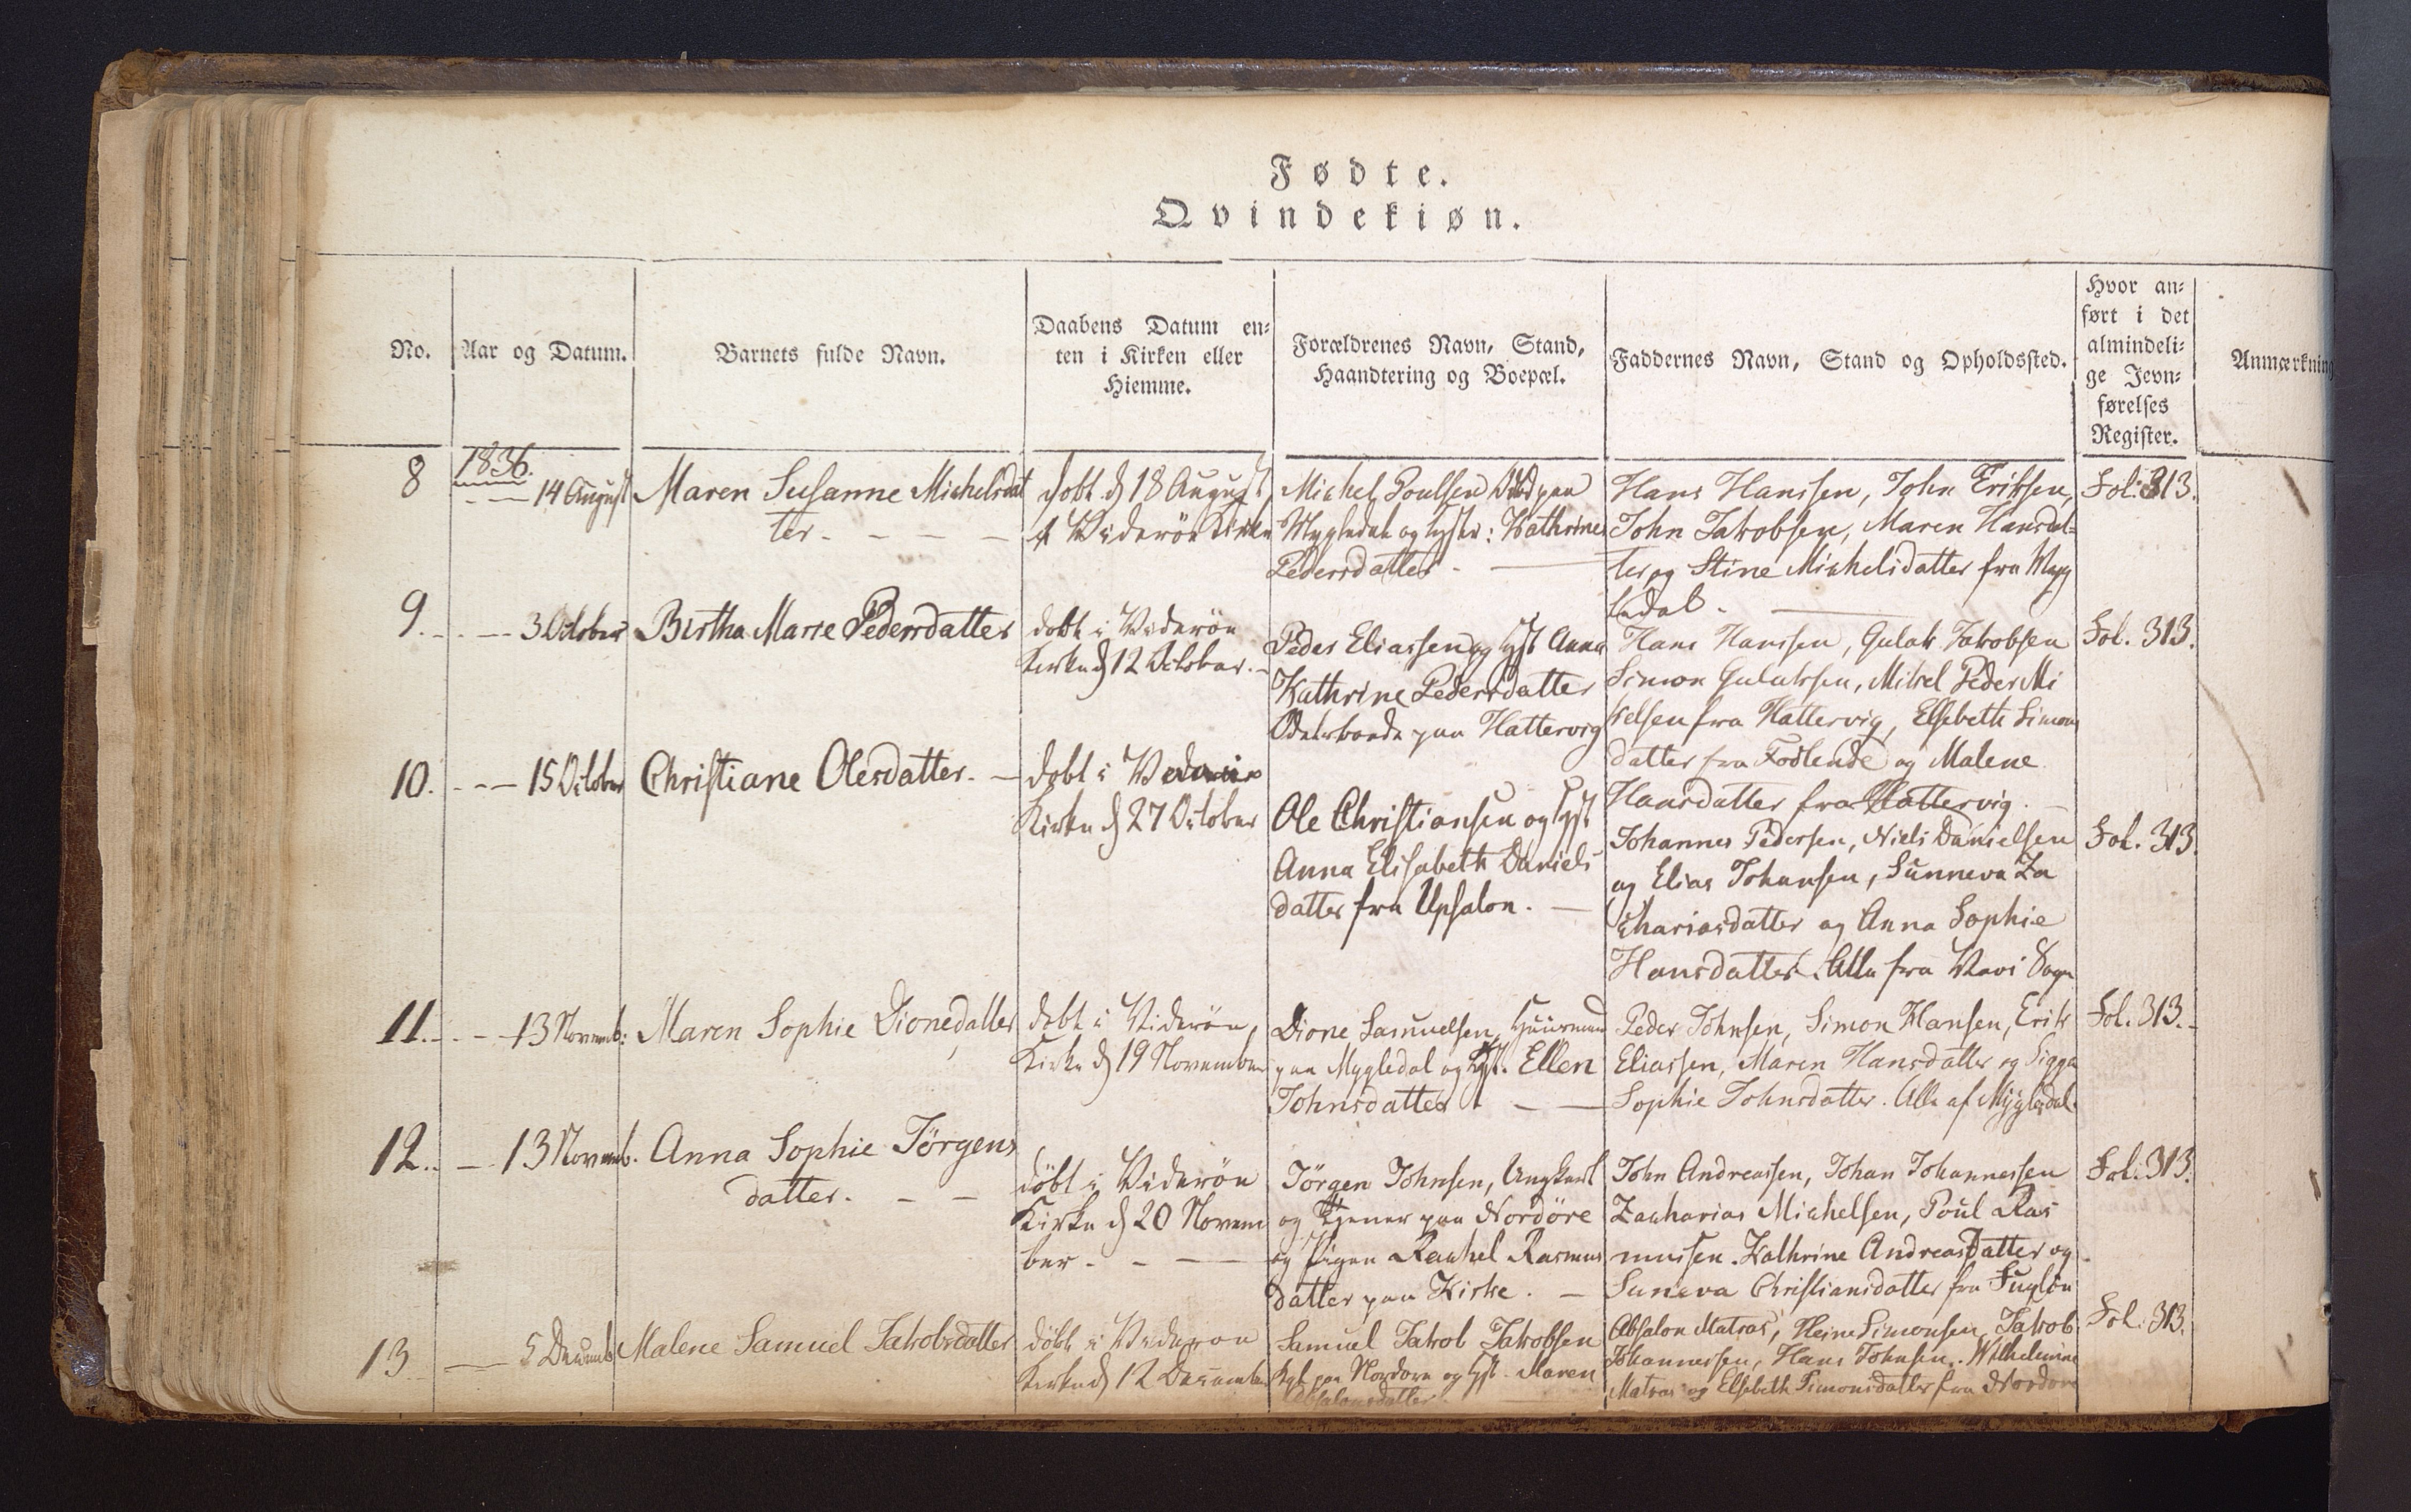 Fødte.
Qvindekiøn.
No.
Aar og Datum.
Barnets fulde Navn.
Daabens Datum en-
ten i Kirken eller
Hiemme.
Forældrenes Navn, Stand,
Haandtering og Boepæl.
Faddernes Navn, Stand og Opholdssted.
Hvor an-
ført i det
almindeli-
ge Jevn-
førelses
Register.
Anmærkning
8
1836.
14 August
Maren Susanne Michelsdat
ter.
døbt d 18 August
i Viderøe Kirke
Michel Poulsen paa
Mygledal og Hstr: Kathrine
Pedersdatter
Hans Hanssen, John Eriksen,
John Jakobsen, Maren Hansdat-
ter og Stine Michelsdatter fra Myg
ledal.
Fol: 313.
9.
3 October
Birtha Marie Pedersdatter
døbt i Viderøe
Kirke d 12 October.
Peder Eliassen og Hst Anna
Kathrine Pedersdatter
Odelsbonde paa Hattervig
Hans Hanssen, Gulak Jakobsen
Simon Gulaksen, Mikel Peder Mi
kelsen fra Hattervig, Elsebeth Simons
datter fra og Malene
Hansdatter fra Hattervig.
Fol. 313.
10.
15 October
Christiane Olesdatter.
døbt i
Kirke d 27 October
Ole Christiansen og Hst
Anna Elisabeth Daniels
datter fra Upsalon.
Johannes Pedersen, Niels Danielsen
og Elias Johansen, Sunneva Za
chariasdatter og Anna Sophie
Hansdatter. Alle fra Sogn
Fol. 313.
11.
13 Novemb:
Maren Sophie Dionedatter
døbt i Viderøe,
Kirke d 19 November
Dione Samuelsen, Huusmand
paa Mygledal og Hst. Ellen
Johnsdatter
Peder Johnsen, Simon Hansen, Erik
Eliassen, Maren Hansdatter og Sigga
Sophie Johnsdatter. Alle af Mygledal.
Fol. 313.
12.
13 Novemb.
Anna Sophie Jørgens
datter.
døbt i Viderøe
Kirke d 20 Novem
ber
Jørgen Johnsen, Ungkarl
og Tjener paa Nordøre
og Pigen Rachel Rasmus
datter paa Kirke.
John Andreassen, Johan Johannessen
Zacharias Michelsen, Poul Ras
mussen. Kathrine Andreas Datter og
Suneva Christiansdatter fra Fugløe
Fol: 313.
13
5 Decemb
Malene Samuel Jakobsdatter
døbt i Viderøe
Kirke d 12 December
Samuel Jakob Jakobsen
paa Nordøre og Hst. Maren
Absalonsdatter.
Absalon Matras, Heine Simonsen, Jakob
Johannessen, Hans Johnsen. Wilhelmine
Matras og Elsebeth Simonsdatter fra Nordøre
Fol. 313.